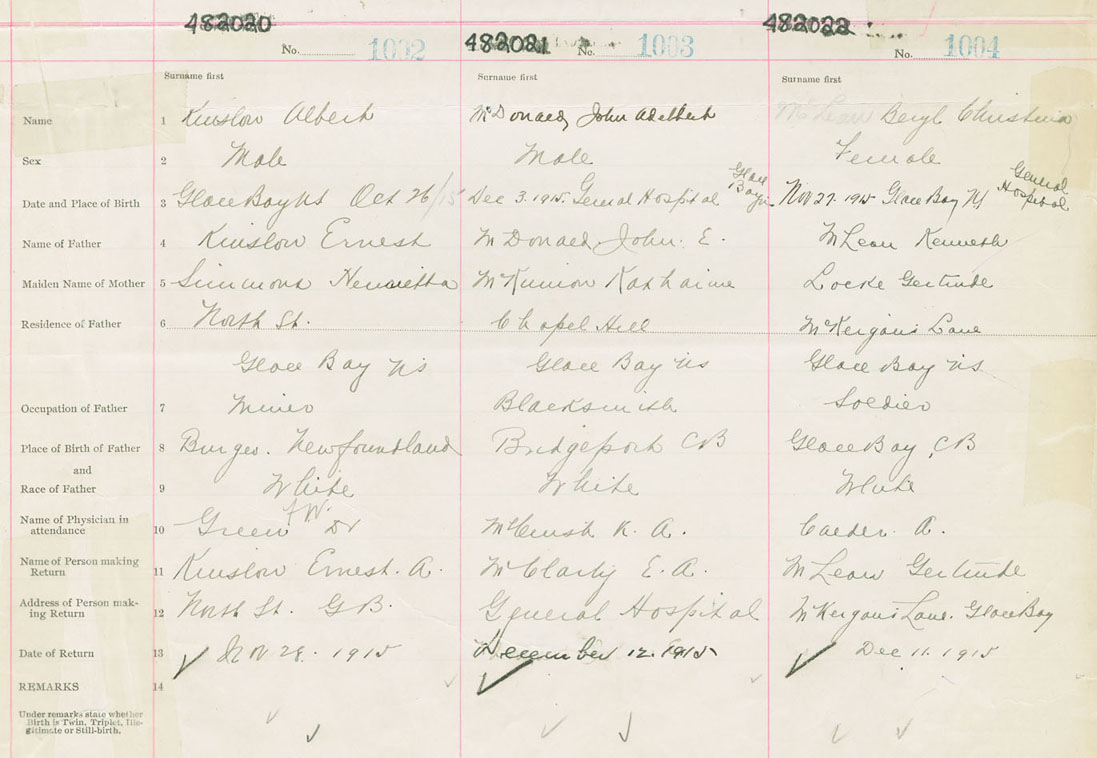 482020 482021 482022
No. 1002 No. 1003 No. 1004
Surname first Surname first Surname first
Name 1 Kinslow Albert McDonald, John Adelbert McLean Beryl Christina
Sex 2 Male Male Female
Date and Place of Birth 3 Glace Bay NS Oct 26/15 Dec 3. 1915. General Hospital Glace Bay Nov 27. 1915 Glace Bay NS General Hospital
Name of Father 4 Kinslow Ernest McDonald, John. E. McLean Kenneth
Maiden Name of Mother 5 Simmons Henrietta McKinnon Katharine Locke Gertrude
Residence of Father 6 North St. Chapel Hill Lane
Glace Bay NS Glace Bay NS Glace Bay NS
Occupation of Father 7 Miner Blacksmith Soldier
Place of Birth of Father 8 Burgeo. Newfoundland Bridgeport CB Glace Bay, CB
and
Race of Father 9 White White White
Name of Physician in
attendance 10 Green Dr K. A. A.
Name of Person making
Return 11 Kinslow Ernest. A. E. A. McLean Gertrude
Address of Person mak-
ing Return 12 North St. G B. General Hospital Lane. Glace Bay
Date of Return 13 Nov 28. 1915 December 12. 1915 Dec 11. 1915
REMARKS 14
Under remarks state whether
Birth is Twin, Triplet, Ille-
gitimate or Still-birth.